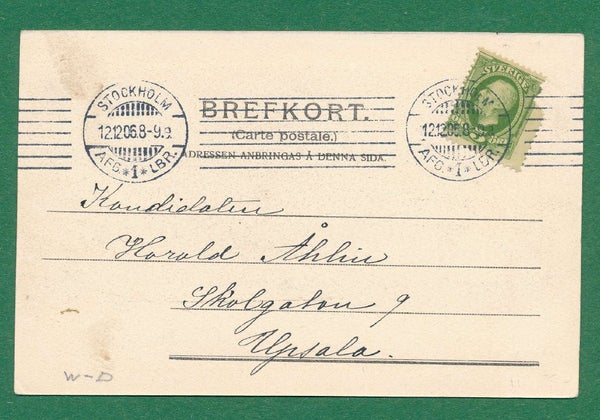 STOCKHOLM
12.12.06.8-9.
AFG.*1*LBR.
STOCKHOLM
12.12.06.8-9.
AFG.*1*LBR.
SVERIGE
BREFKORT.
(Carte postale.)
ADRESSEN ANBRINGAS Å DENNA SIDA.
Kandidaten
Harald Åhlin
Skolgatan 9
Upsala.
W-D